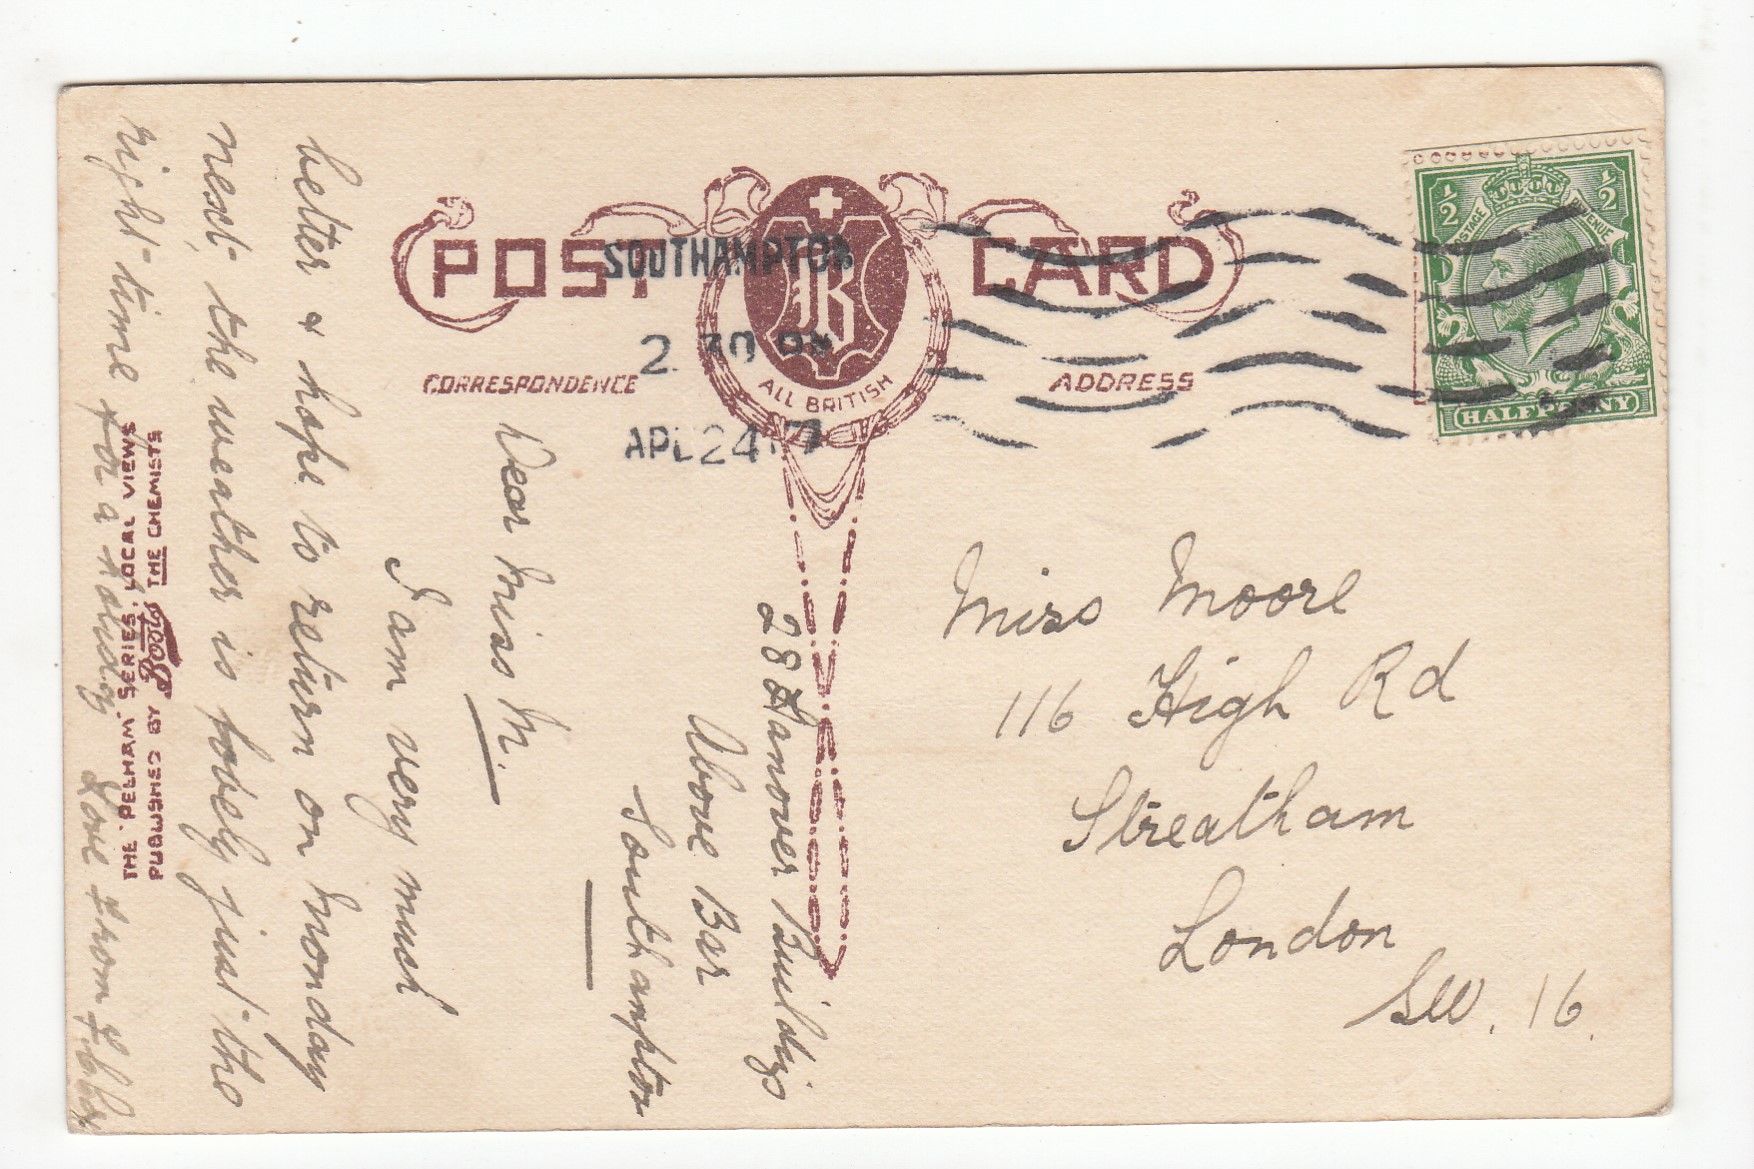 POST CARD
ALL BRITISH
CORRESPONDENCE
ADDRESS
SOUTHAMPTON
2 30 PM
APL 24 17
½ ½
POSTAGE REVENUE
HALFPENNY
28 Hanover Buildgs
Above Bar
Southampton
Dear Miss M.
I am very much
better & hope to return on Monday
next, the weather is lovely just the
right time for a holiday Love from
Miss Moore
116 High Rd
Streatham
London
SW. 16.
THE "PELHAM" SERIES, LOCAL VIEWS
PUBLISHED BY Boots THE CHEMISTS